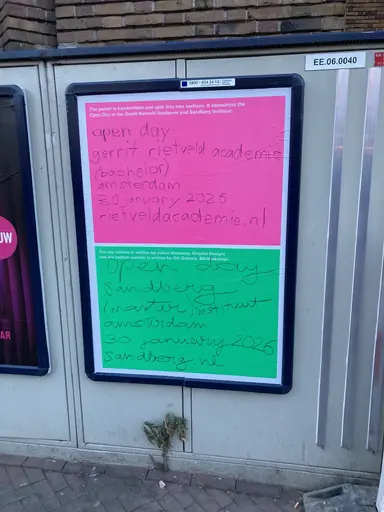 EE.06.0040
The poster is handwritten and split into two sections. It announces the
Open Day at the Gerrit Rietveld Academie and Sandberg Instituut.
open day
gerrit rietveld academie
(bachelor)
amsterdam
30 january 2026
rietveldacademie.nl
open day
sandberg
(master) instituut
amsterdam
30 january 2026
sandberg.nl
UW
AR